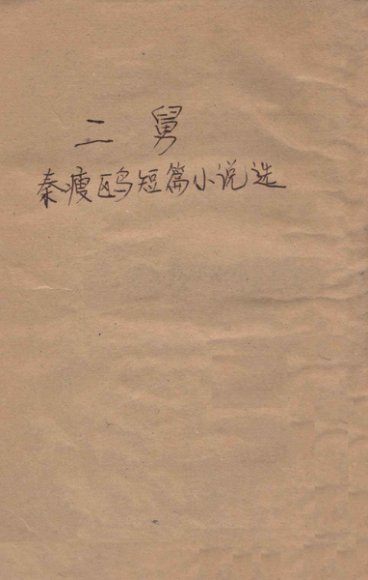 二舅
秦瘦鸥短篇小说选